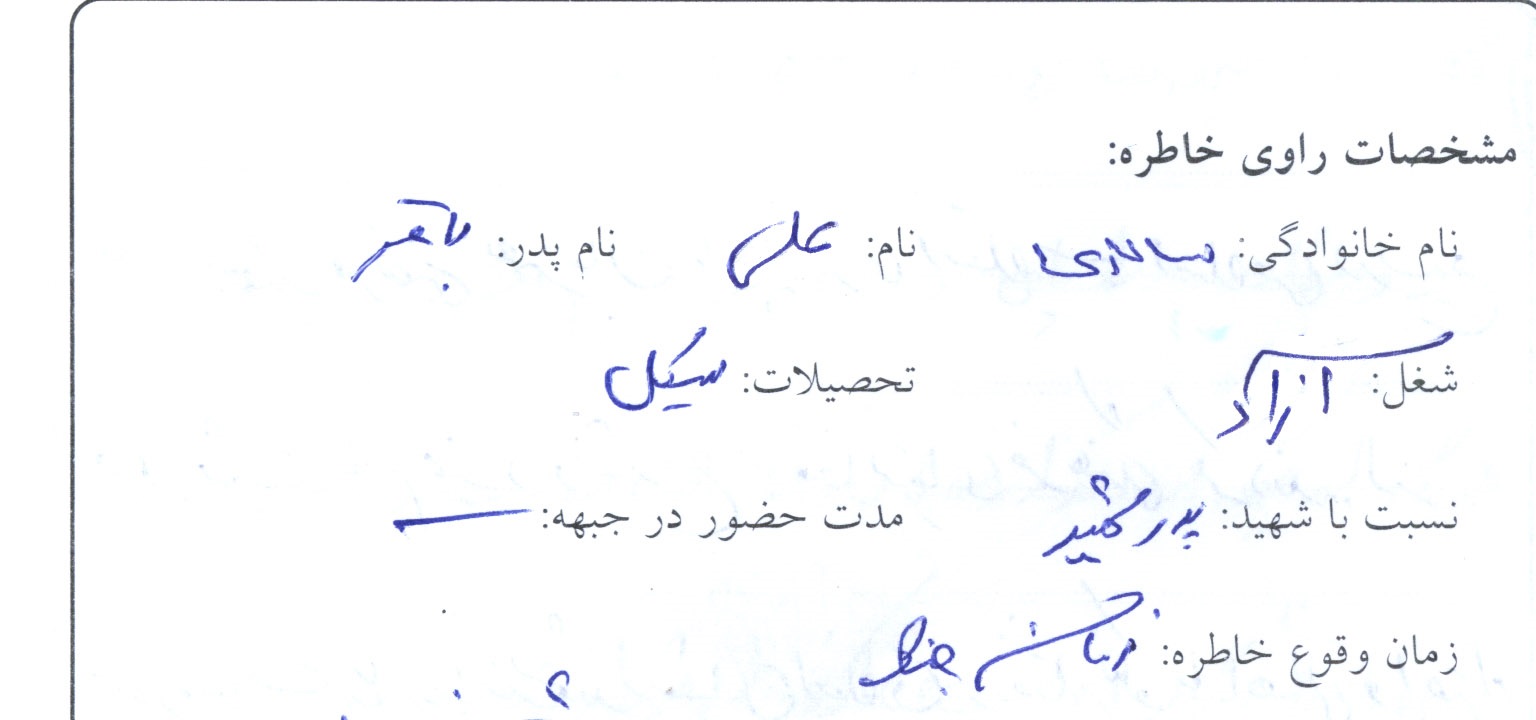 مشخصات راوی خاطره:
نام خانوادگی: سالاری نام: علی نام پدر: باقر
شغل: آزاد تحصیلات: سیکل
نسبت با شهید: پدر شهید مدت حضور در جبهه: —
زمان وقوع خاطره: زمان جنگ